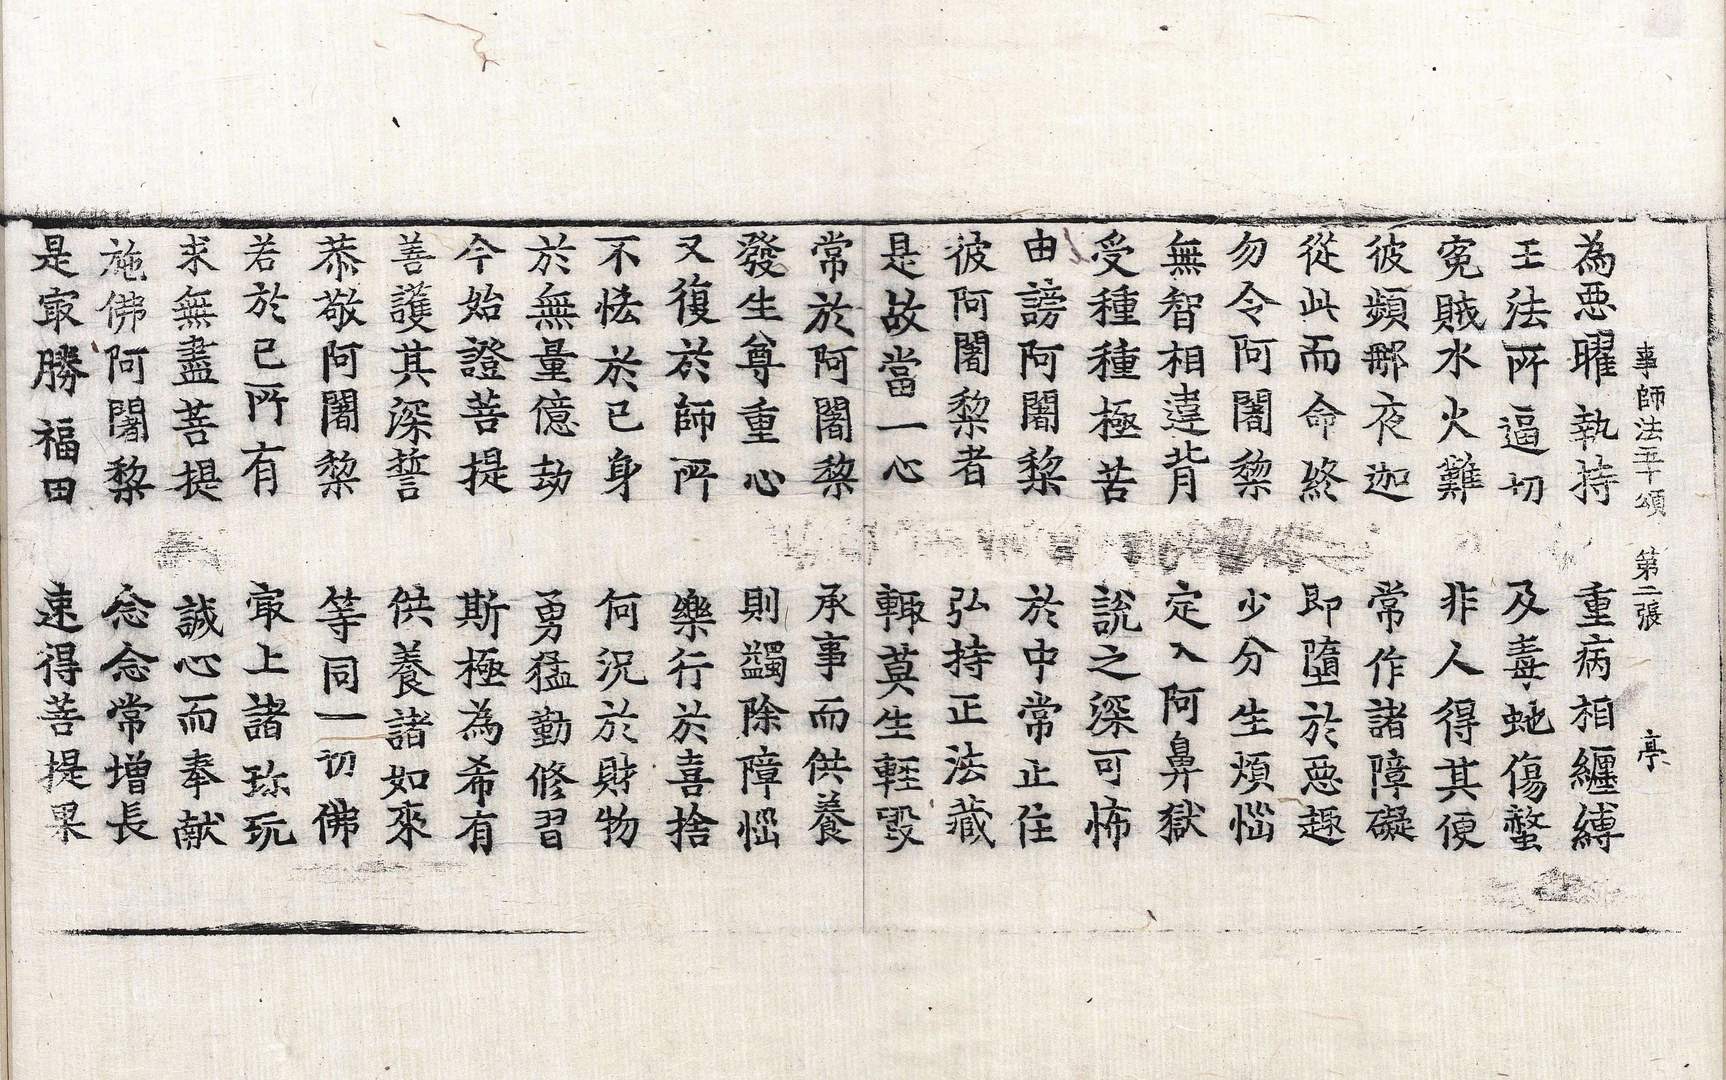 事師法五十頌 第二張 亭
為惡曜執持 重病相纏縛
王法所逼切 及毒虵傷螫
寃賊水火難 非人得其便
彼頻那夜迦 常作諸障礙
從此而命終 即墮於惡趣
勿令阿闍黎 少分生煩惱
無智相違背 定入阿鼻獄
受種種極苦 說之深可怖
由謗阿闍黎 於中常止住
彼阿闍黎者 弘持正法藏
是故當一心 輙莫生輕毀
常於阿闍黎 承事而供養
發生尊重心 則蠲除障惱
又復於師所 樂行於喜捨
不恡於已身 何況於財物
於無量億劫 勇猛勤修習
今始證菩提 斯極為希有
善護其深誓 供養諸如來
恭敬阿闍黎 等同一切佛
若於已所有 㝡上諸珎玩
求無盡菩提 誠心而奉献
施佛阿闍黎 念念常增長
是㝡勝福田 速得菩提果